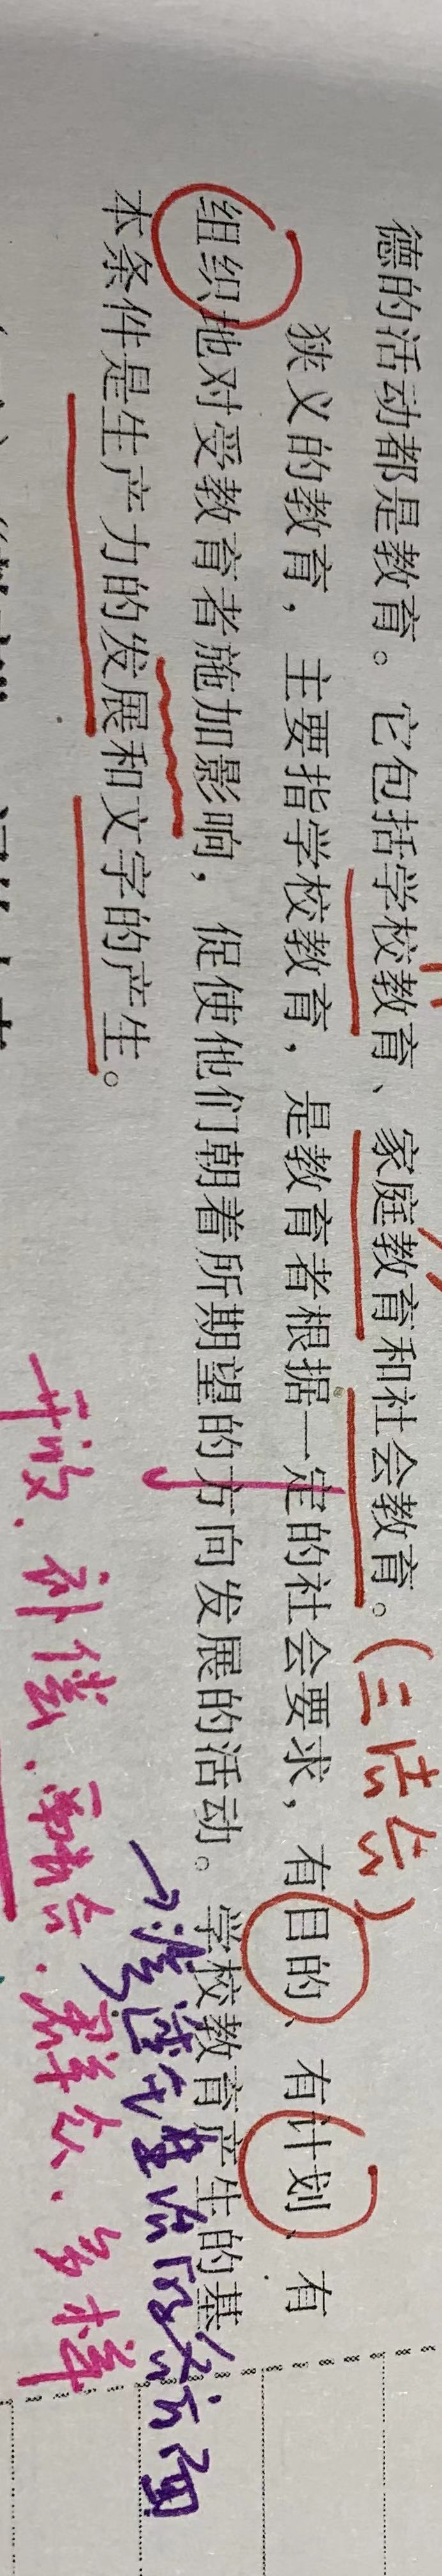 德的活动都是教育。它包括学校教育、家庭教育和社会教育。(三结合)
狭义的教育，主要指学校教育，是教育者根据一定的社会要求，有目的、有计划、有
组织地对受教育者施加影响，促使他们朝着所期望的方向发展的活动。学校教育产生的基
本条件是生产力的发展和文字的产生。
→渗透在生活的各方面
开放、补偿、群众、多样